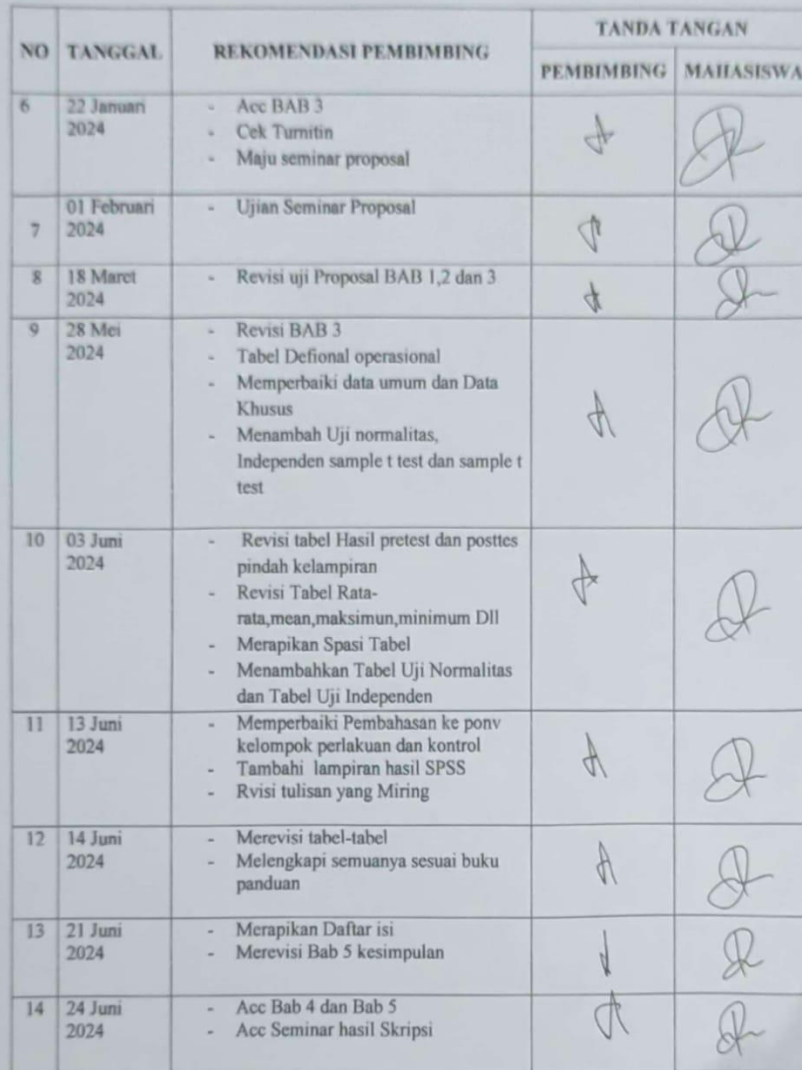 NO TANGGAL REKOMENDASI PEMBIMBING TANDA TANGAN
PEMBIMBING MAHASISWA
6 22 Januari - Acc BAB 3
2024 - Cek Turnitin
- Maju seminar proposal
01 Februari - Ujian Seminar Proposal
7 2024
8 18 Maret - Revisi uji Proposal BAB 1,2 dan 3
2024
9 28 Mei - Revisi BAB 3
2024 - Tabel Defional operasional
- Memperbaiki data umum dan Data
Khusus
- Menambah Uji normalitas,
Independen sample t test dan sample t
test
10 03 Juni - Revisi tabel Hasil pretest dan posttes
2024 pindah kelampiran
- Revisi Tabel Rata-
rata,mean,maksimun,minimum Dll
- Merapikan Spasi Tabel
- Menambahkan Tabel Uji Normalitas
dan Tabel Uji Independen
11 13 Juni - Memperbaiki Pembahasan ke ponv
2024 kelompok perlakuan dan kontrol
- Tambahi lampiran hasil SPSS
- Rvisi tulisan yang Miring
12 14 Juni - Merevisi tabel-tabel
2024 - Melengkapi semuanya sesuai buku
panduan
13 21 Juni - Merapikan Daftar isi
2024 - Merevisi Bab 5 kesimpulan
14 24 Juni - Acc Bab 4 dan Bab 5
2024 - Acc Seminar hasil Skripsi